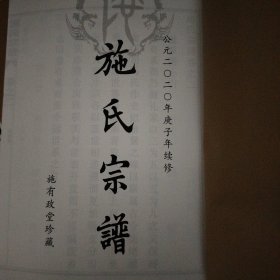 公元二〇二〇年庚子年续修
施氏宗譜
施有政堂珍藏